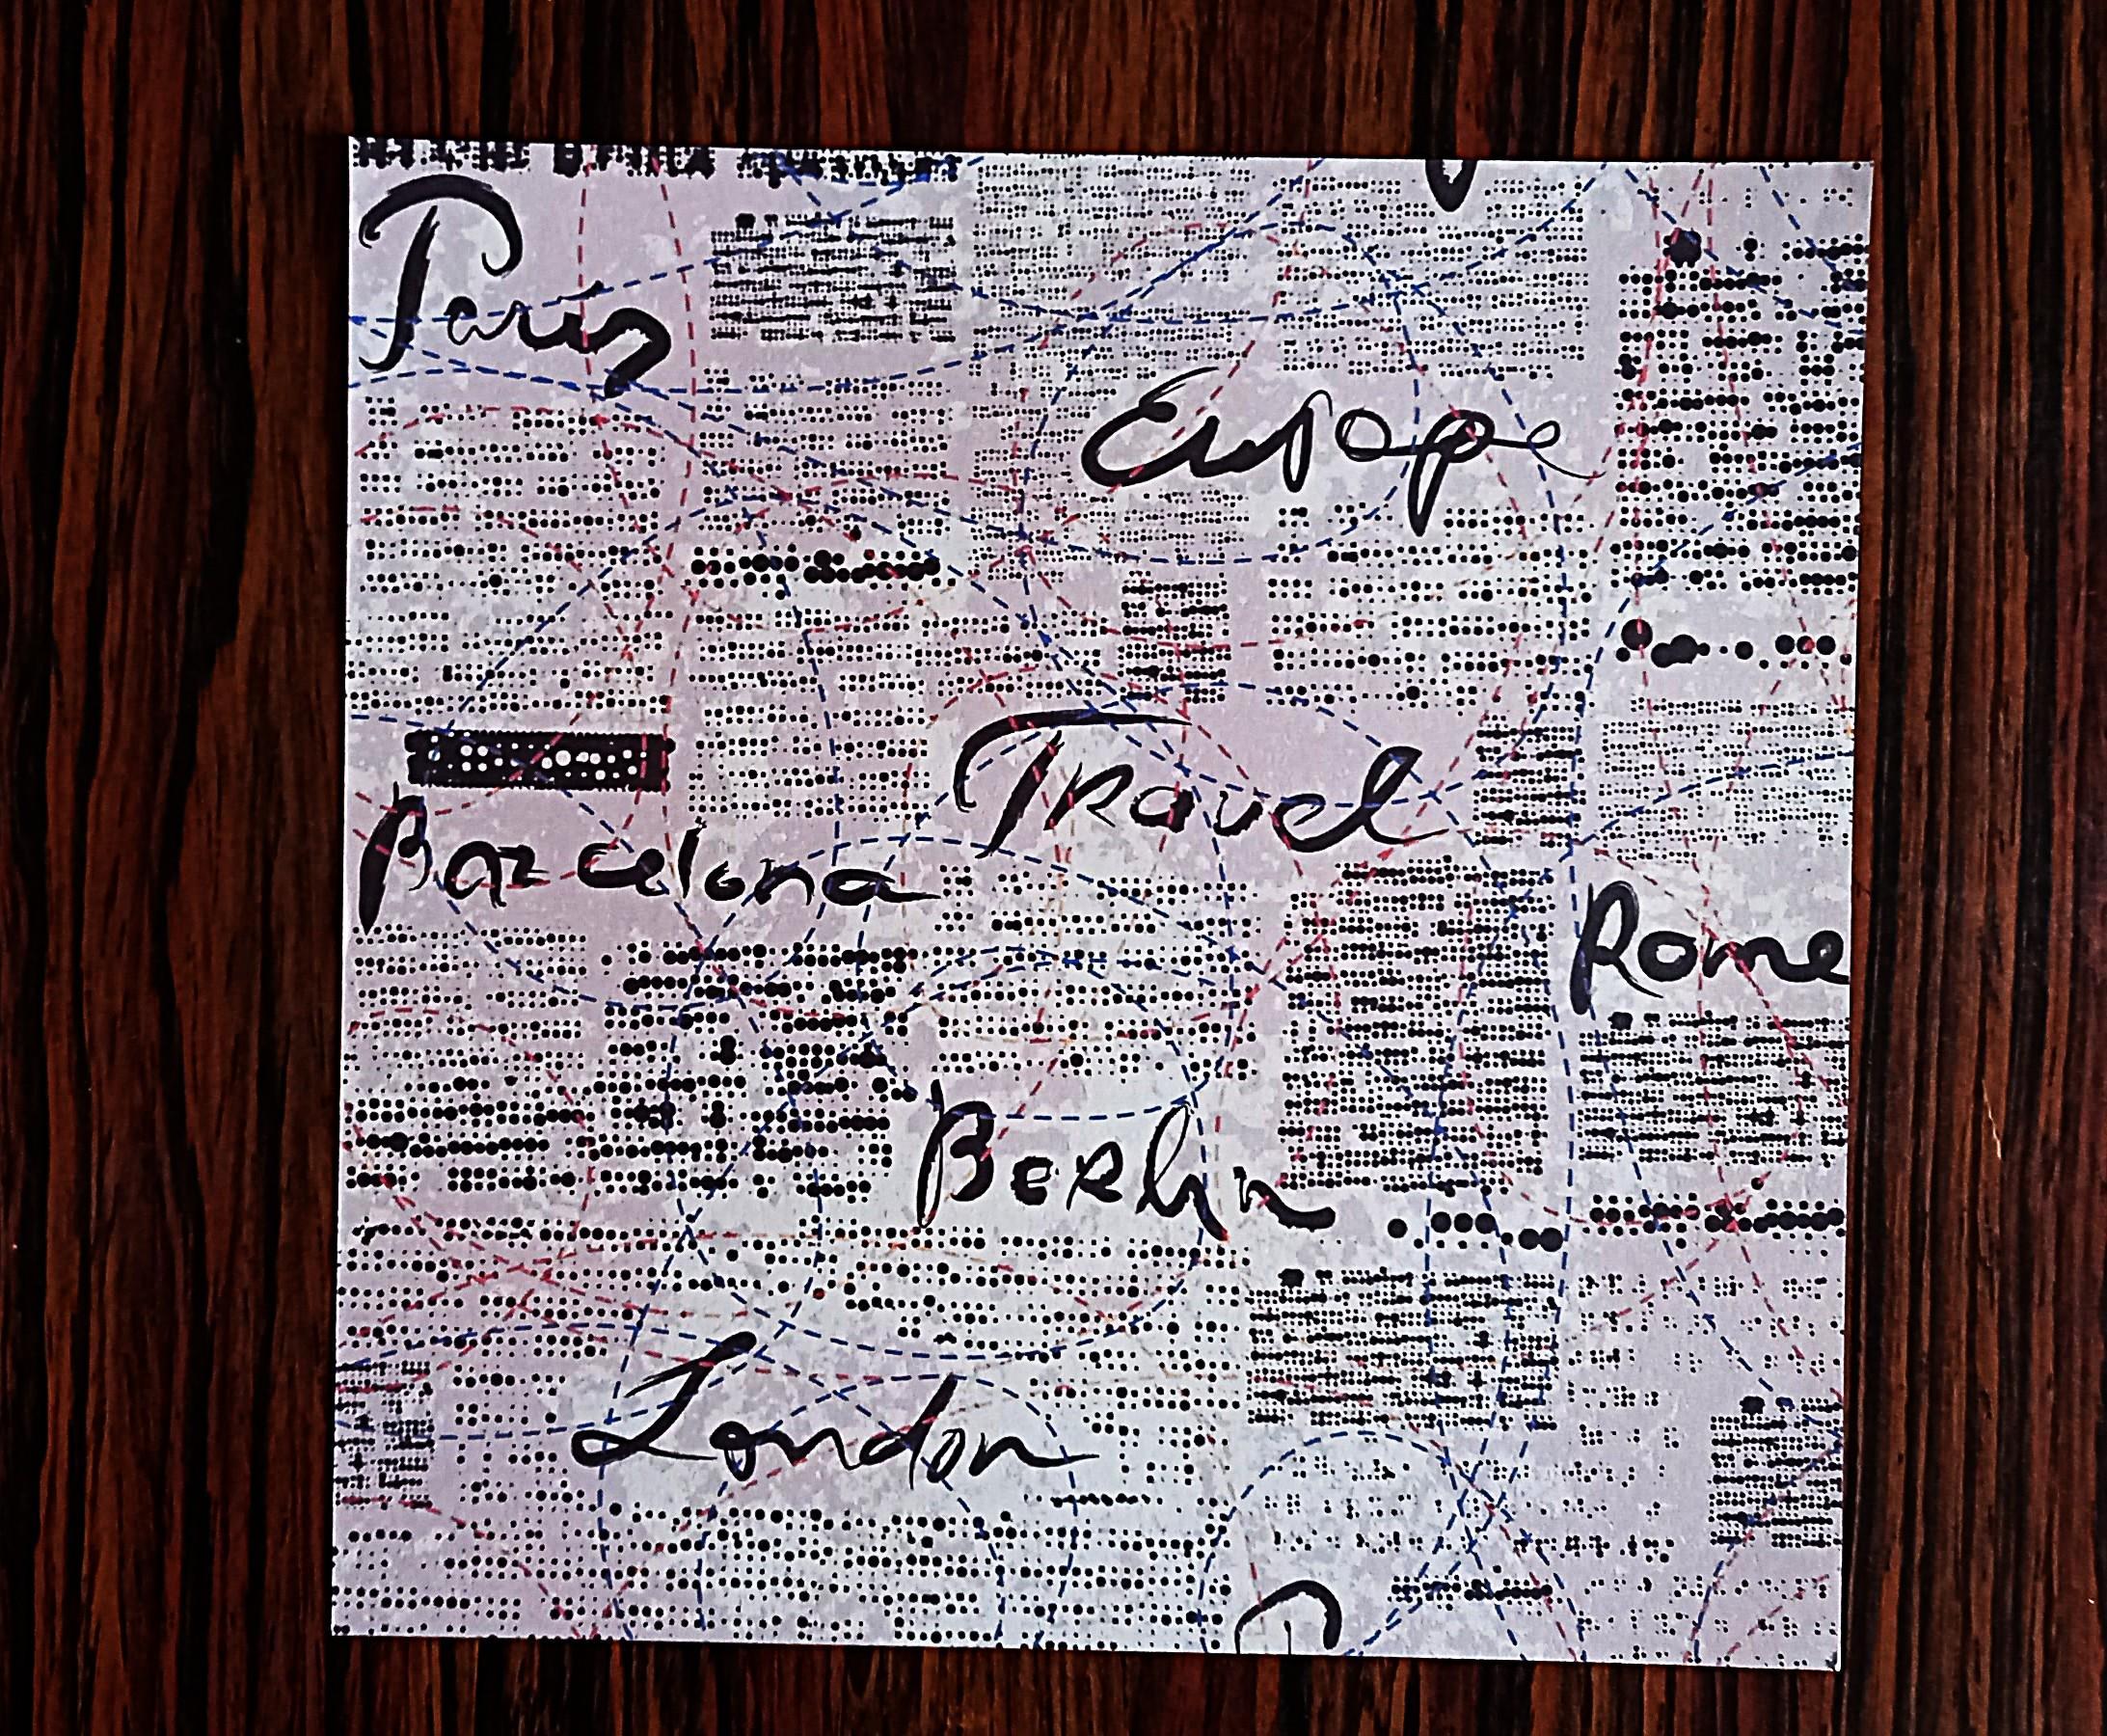 Paris
Europe
Travel
Barcelona
Rome
Berlin
London